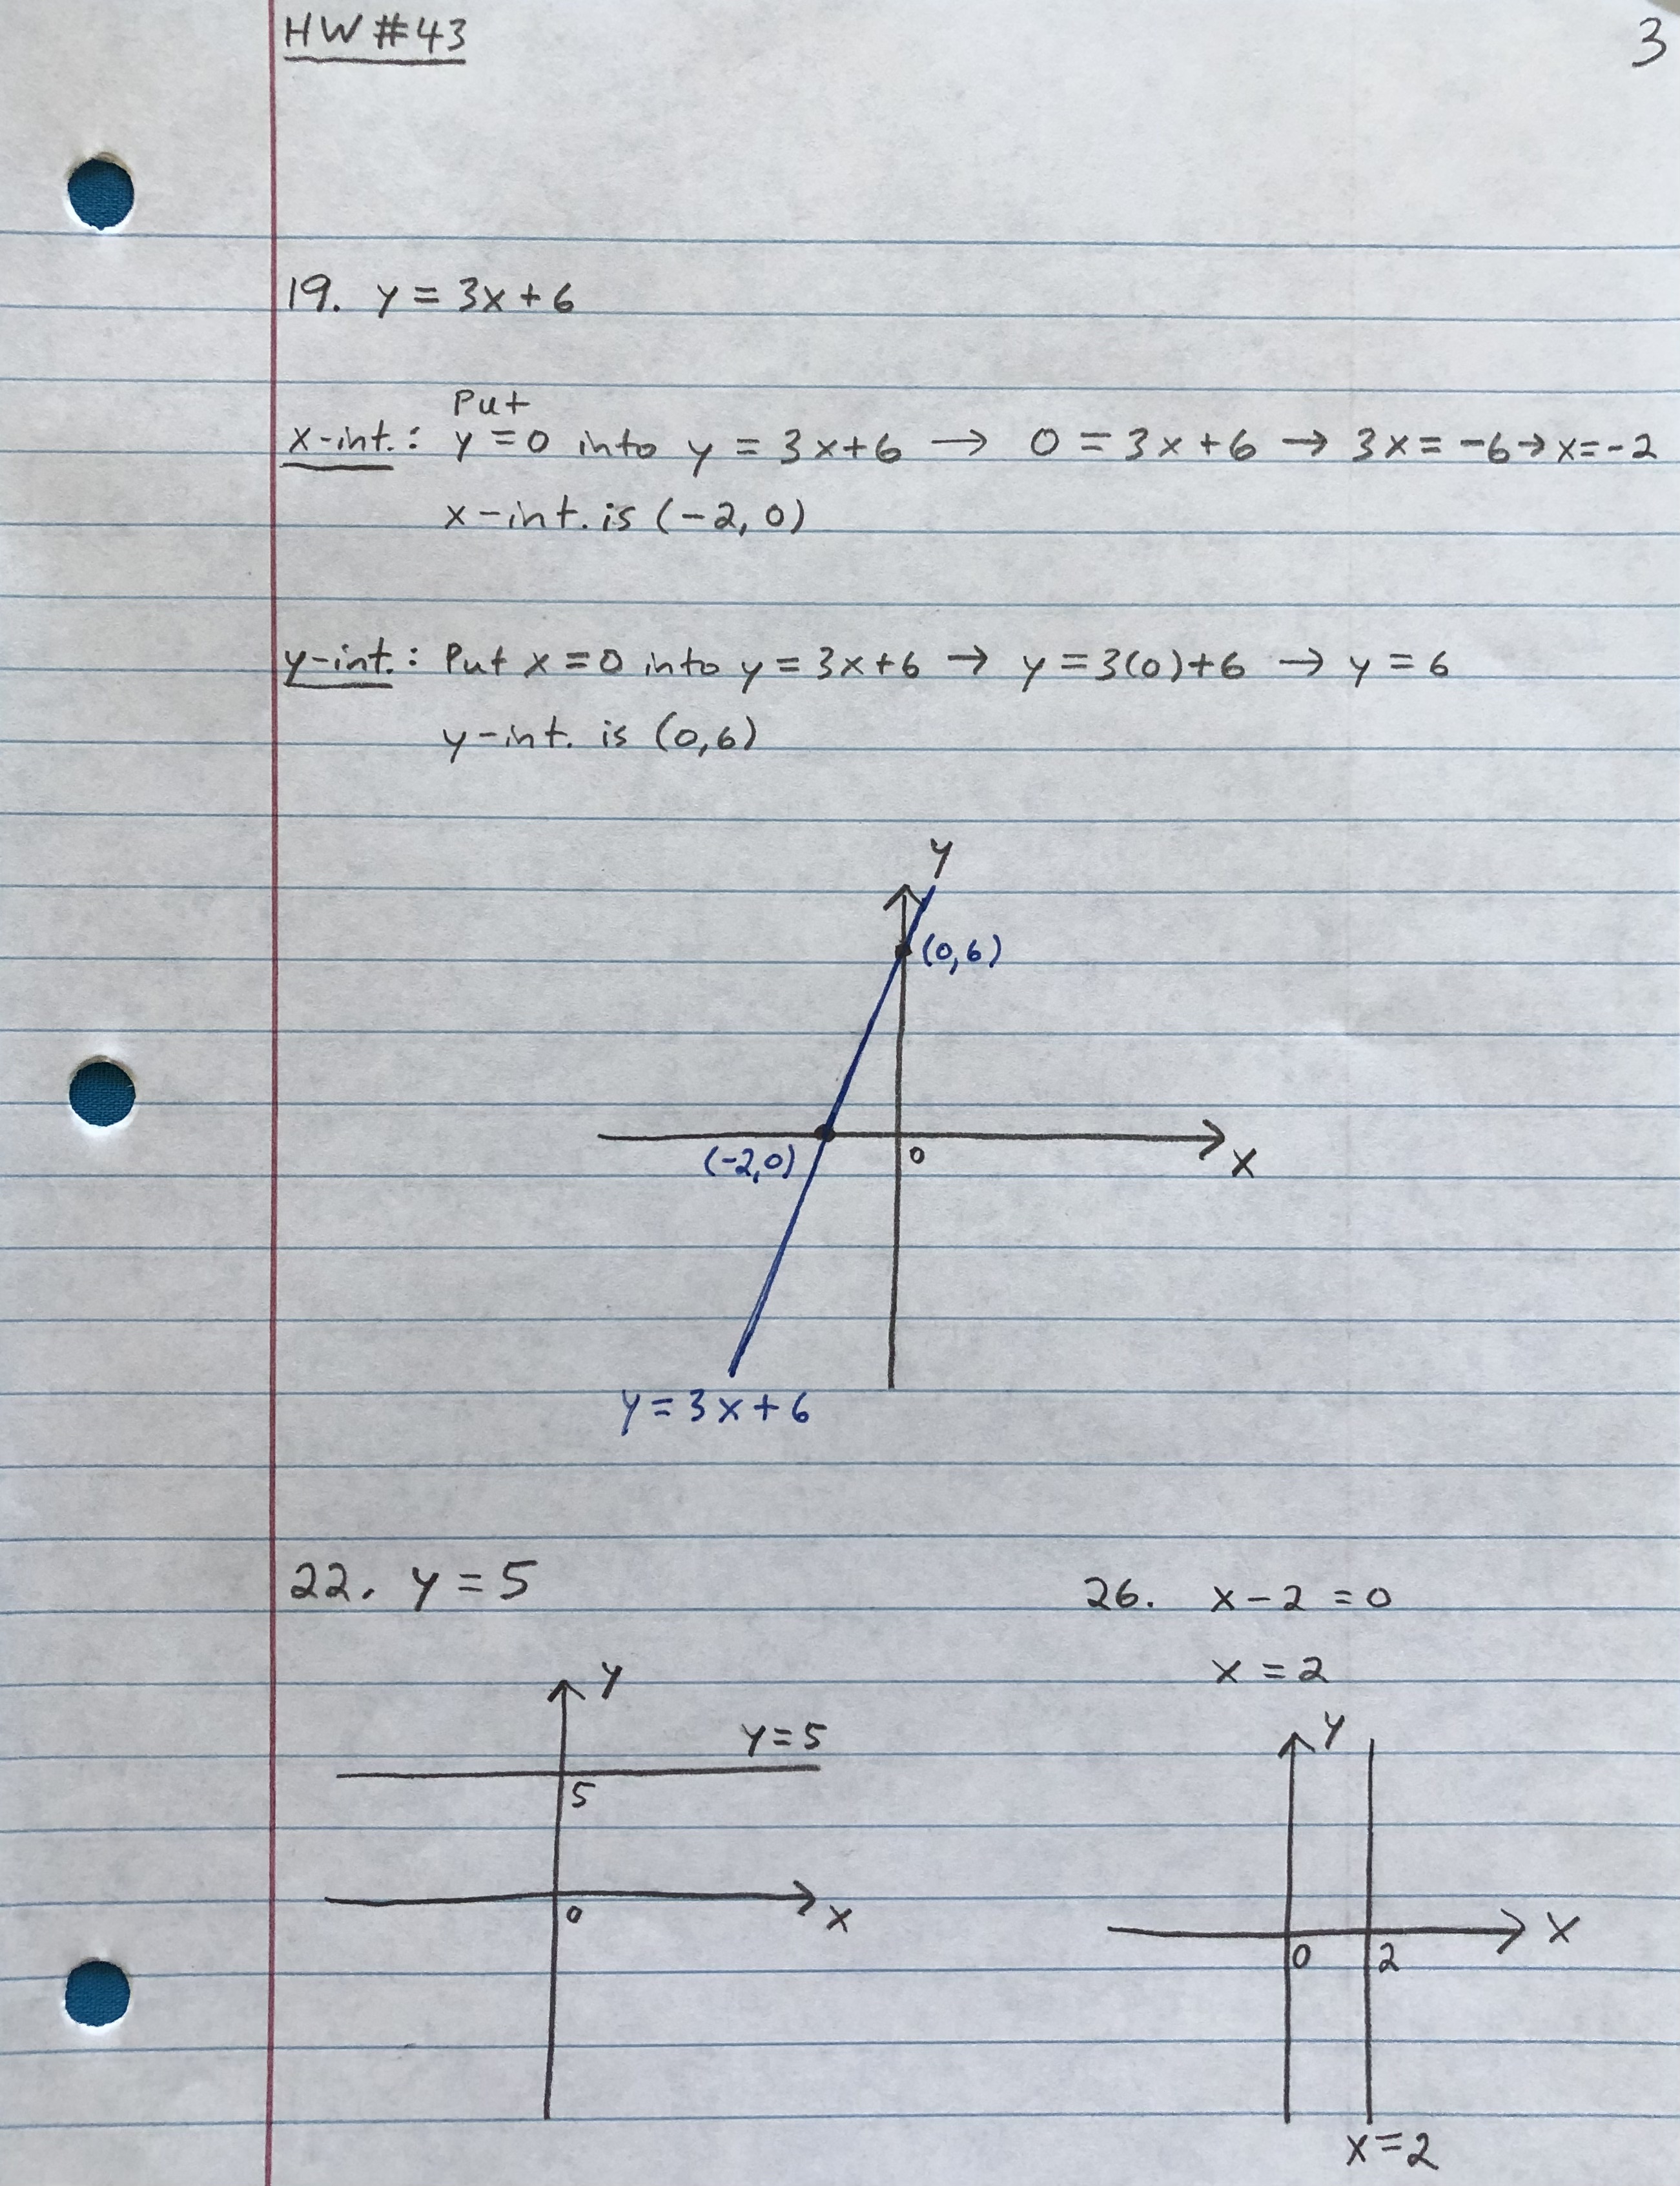 HW #43
3
19. y = 3x+6
Put
x-int.: y=0 into y = 3x+6 → 0 = 3x+6 → 3x = -6 → x=-2
x-int. is (-2, 0)
y-int.: Put x=0 into y = 3x+6 → y = 3(0)+6 → y = 6
y-int. is (0,6)
y
(0,6)
(-2,0)
0
x
y = 3x+6
22. y = 5
26. x-2 = 0
x = 2
y
y=5
5
0
x
y
x
0
2
x=2